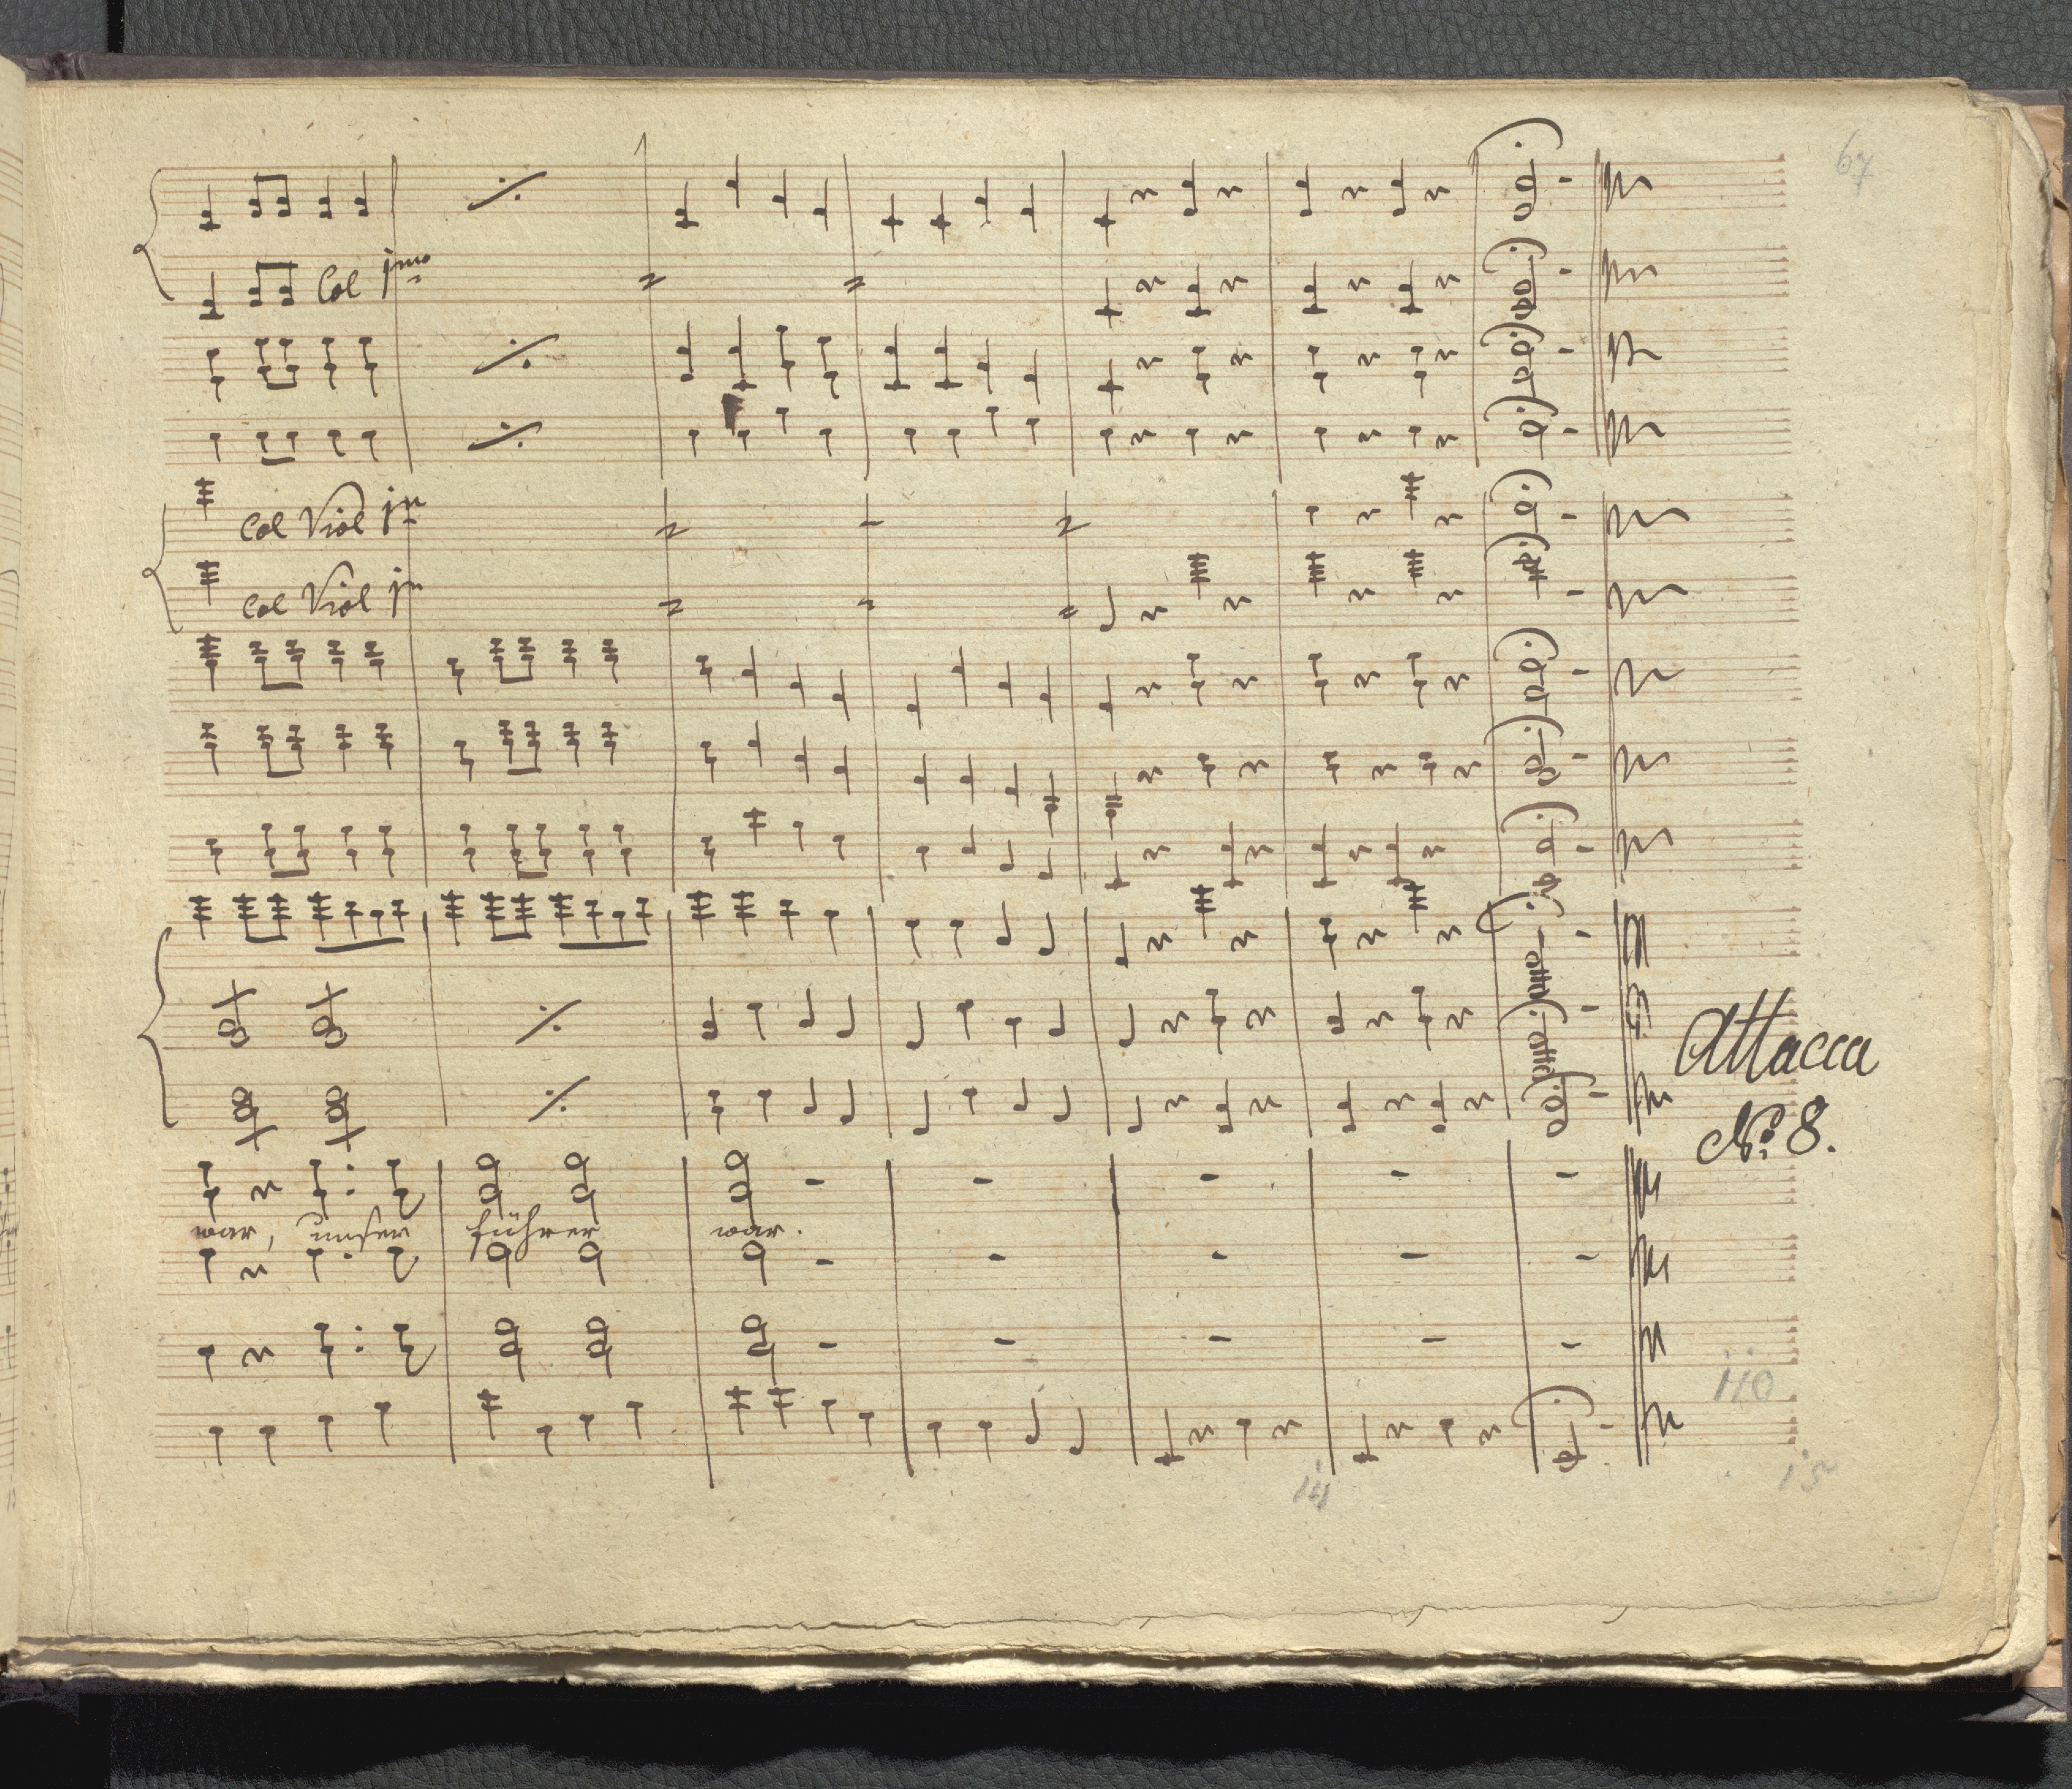 67
Col jmo
Col Viol jm
Col Viol jm
Attacca
No. 8.
war, unser führer war.
110
14
15